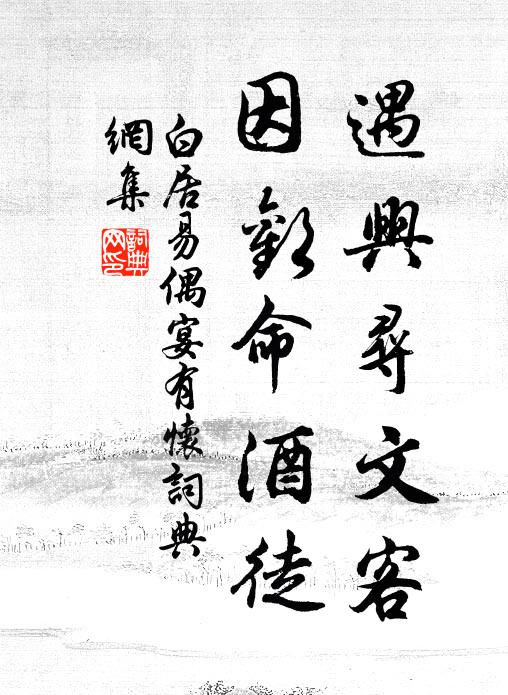 遇興尋文客
因歡命酒徒
白居易偶宴有懷詞典
網集
詞典
网印